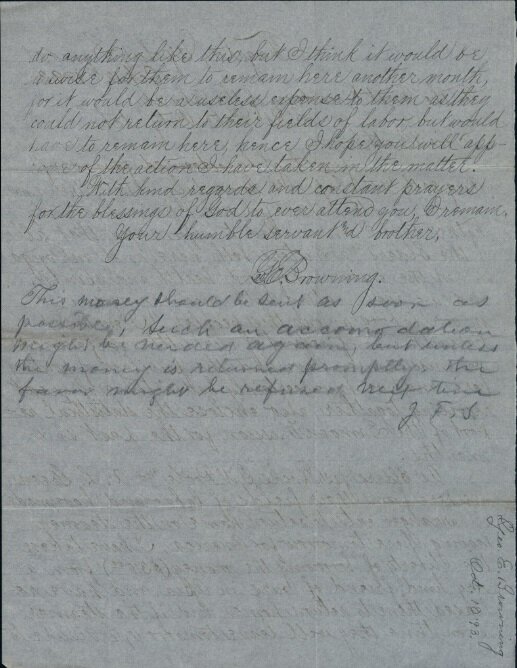 do anything like this, but I think it would be
wise for them to remain here another month,
for it would be a useless expense to them as they
could not return to their fields of labor but would
have to remain here, hence I hope you will app-
of the action I have taken in the matter.
With kind regards and constant prayers
for the blessings of God to ever attend you, I remain,
Your humble servant and brother,
Browning.
This money should be sent as soon as
possible, such an accomodation
might be needed again, but unless
the money is returned promptly the
favor might be refused next time
J. F. S.
Geo E. Browning
Oct. 10 93